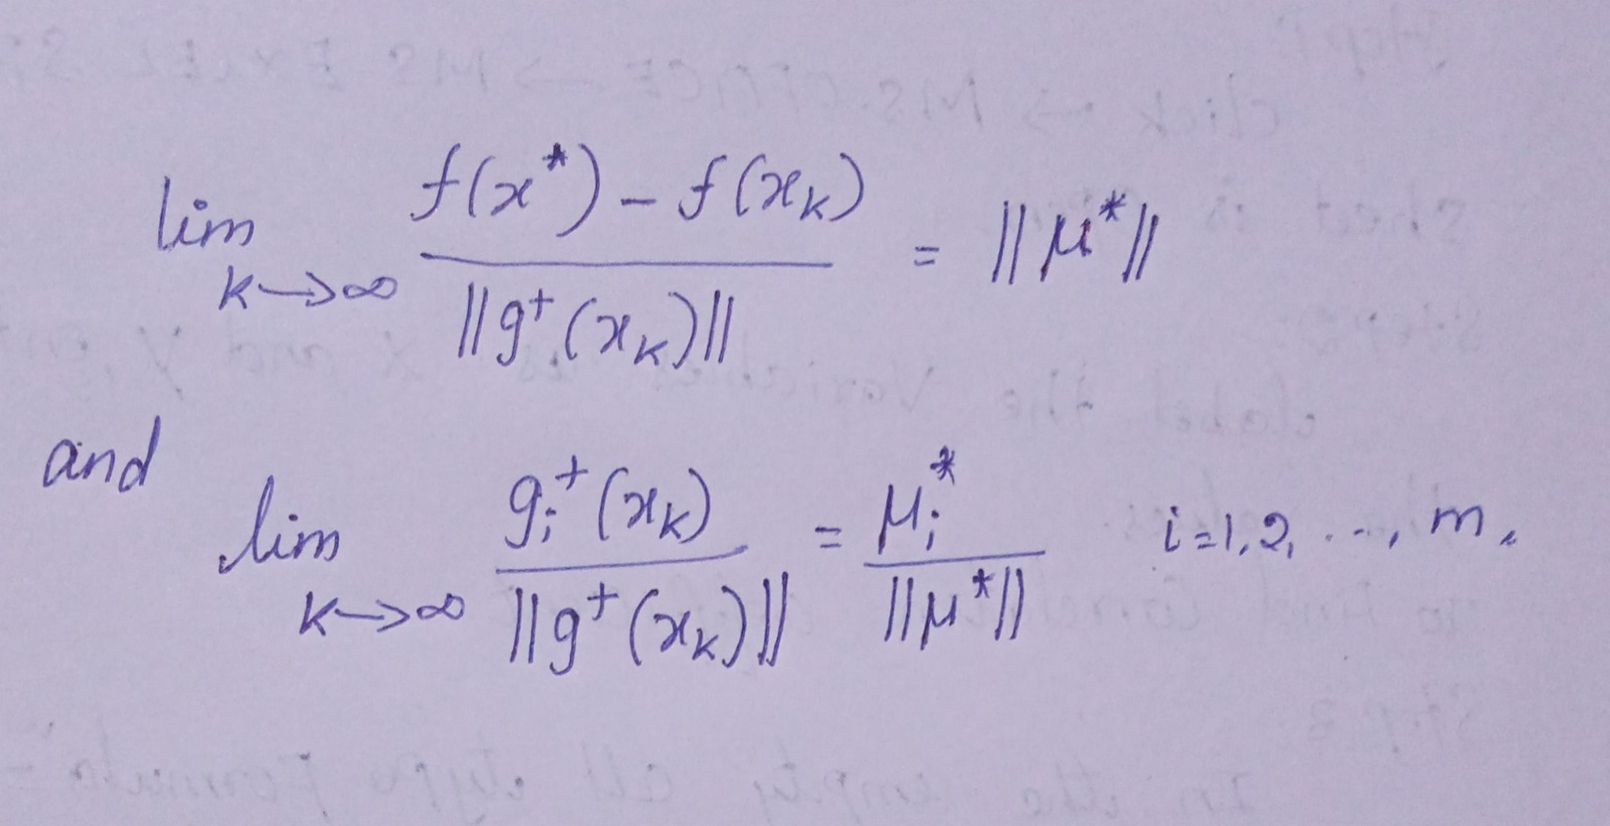 lim k→∞ f(x*) - f(xₖ) / ||g⁺(xₖ)|| = ||μ*||
and
lim k→∞ gᵢ⁺(xₖ) / ||g⁺(xₖ)|| = μᵢ* / ||μ*|| i=1,2, ..., m.